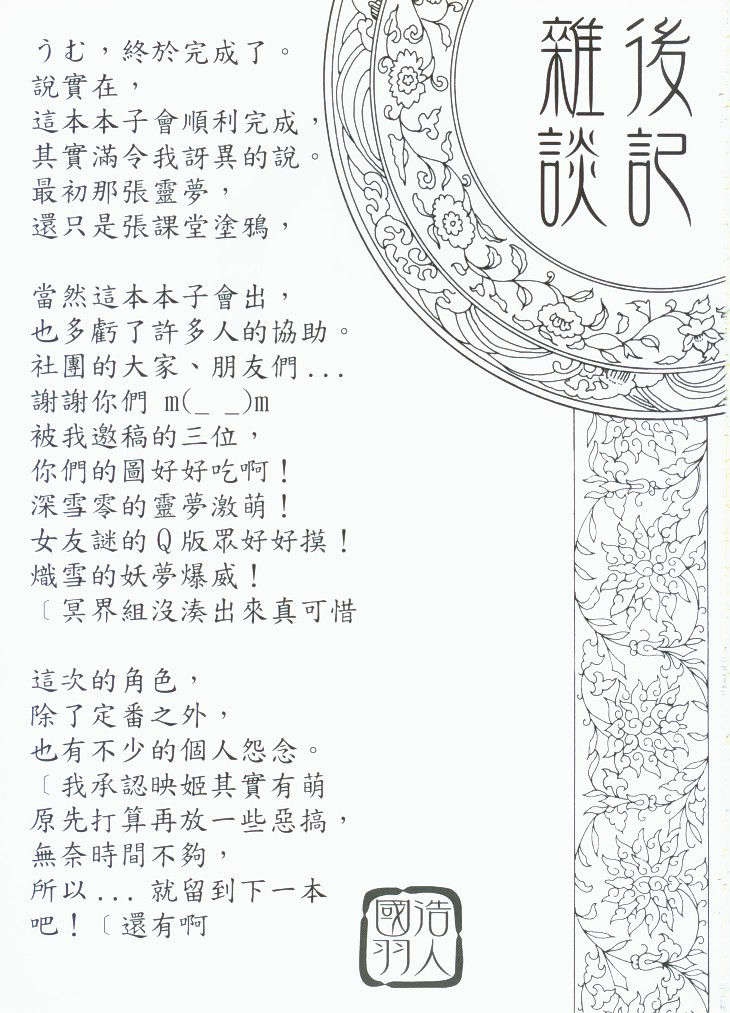 後記
雜談
うむ，終於完成了。
說實在，
這本本子會順利完成，
其實滿令我訝異的說。
最初那張靈夢，
還只是張課堂塗鴉，
當然這本本子會出，
也多虧了許多人的協助。
社團的大家、朋友們...
謝謝你們 m(_ _)m
被我邀稿的三位，
你們的圖好好吃啊！
深雪零的靈夢激萌！
女友謎的Q版眾好好摸！
熾雪的妖夢爆威！
〔冥界組沒湊出來真可惜
這次的角色，
除了定番之外，
也有不少的個人怨念。
〔我承認映姬其實有萌
原先打算再放一些惡搞，
無奈時間不夠，
所以... 就留到下一本
吧！〔還有啊
浩人
國羽